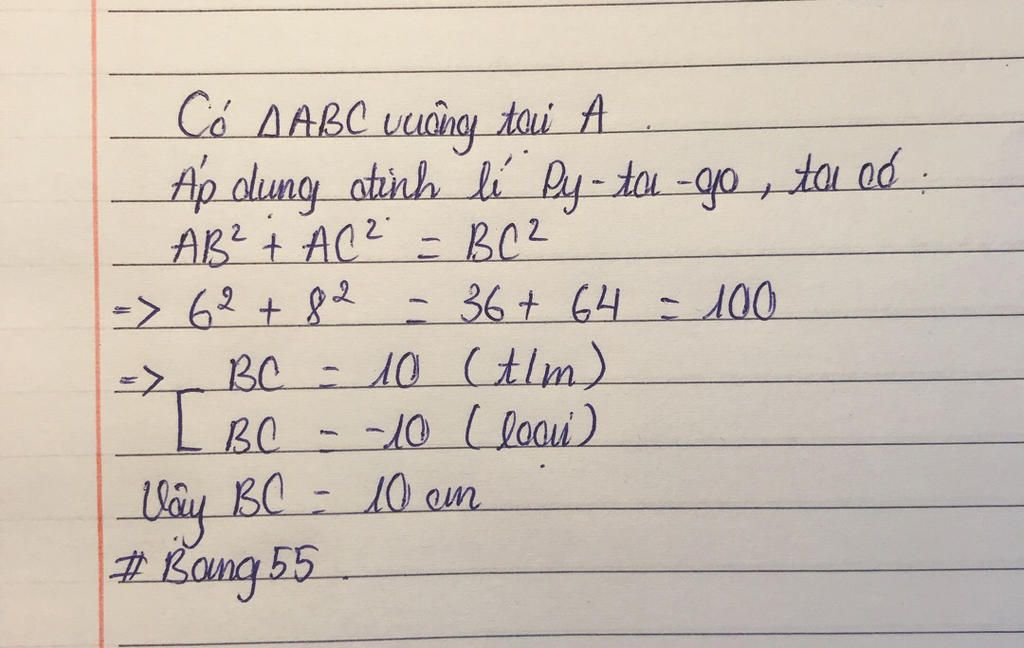 Có ΔABC vuông tại A.
Áp dụng định lí Py-ta-go, ta có:
AB² + AC² = BC²
=> 6² + 8² = 36 + 64 = 100
=> [ BC = 10 (t/m)
BC = -10 (loại)
Vậy BC = 10 cm
# Bang55.